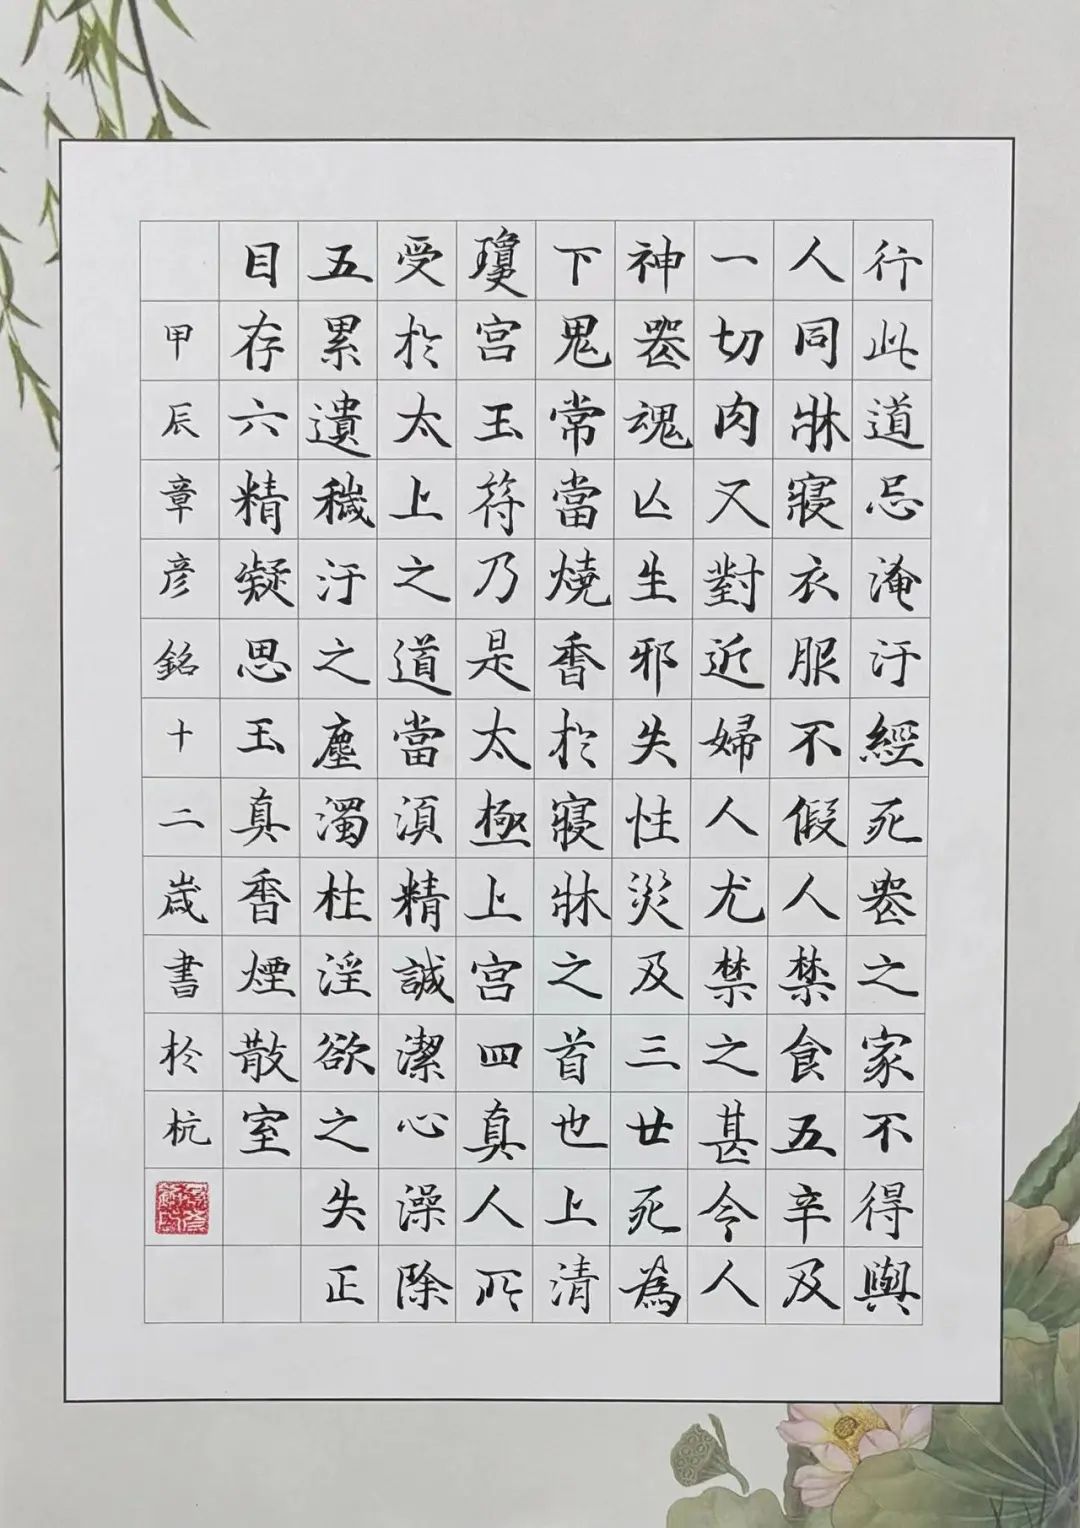 行此道忌淹汙經死喪之家不得與
人同牀寢衣服不假人禁食五辛及
一切肉又對近婦人尤禁之甚令人
神喪魂亡生邪失性災及三世死為
下鬼常當燒香於寢牀之首也上清
瓊宮玉符乃是太極上宮四真人所
受於太上之道當須精誠潔心澡除
五累遺穢汙之塵濁杜淫欲之失正
目存六精凝思玉真香煙散室
甲辰章彥銘十二歲書於杭